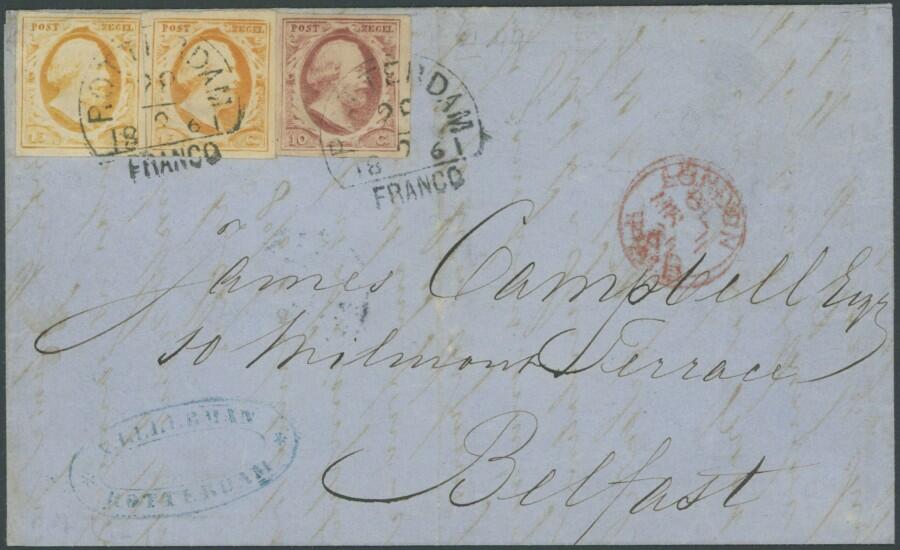 POST ZEGEL
POST ZEGEL
POST ZEGEL
10 C.
ROTTERDAM
18 61
FRANCO
ROTTERDAM
18 61
FRANCO
LONDON
James Campbell Esqr
10 Wilmont Terrace
Belfast
* ROTTERDAM *